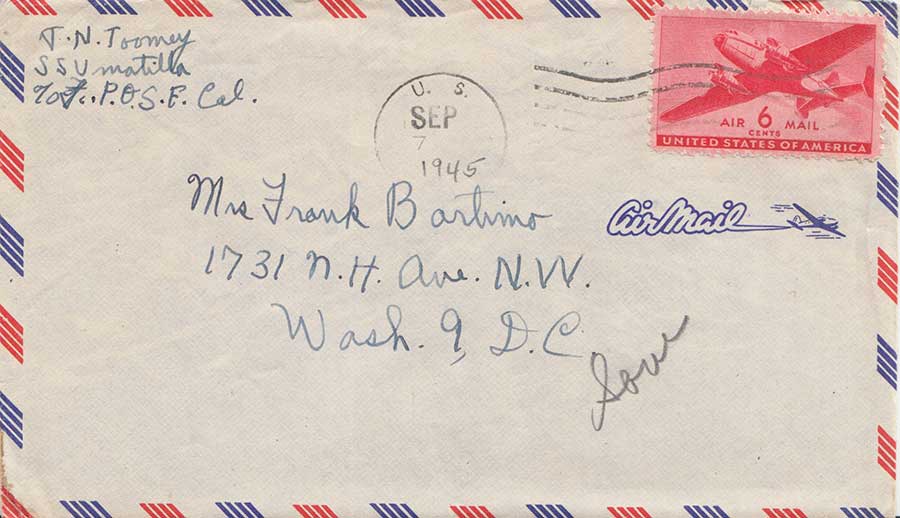 T. N. Toomey
SS Umatilla
c/o F.. P.O. S.F. Cal.
U. S.
SEP
7
1945
AIR 6 MAIL
CENTS
UNITED STATES OF AMERICA
Mrs Frank Bartimo
Air Mail
1731 N.H. Ave. N.W.
Wash. 9, D.C.